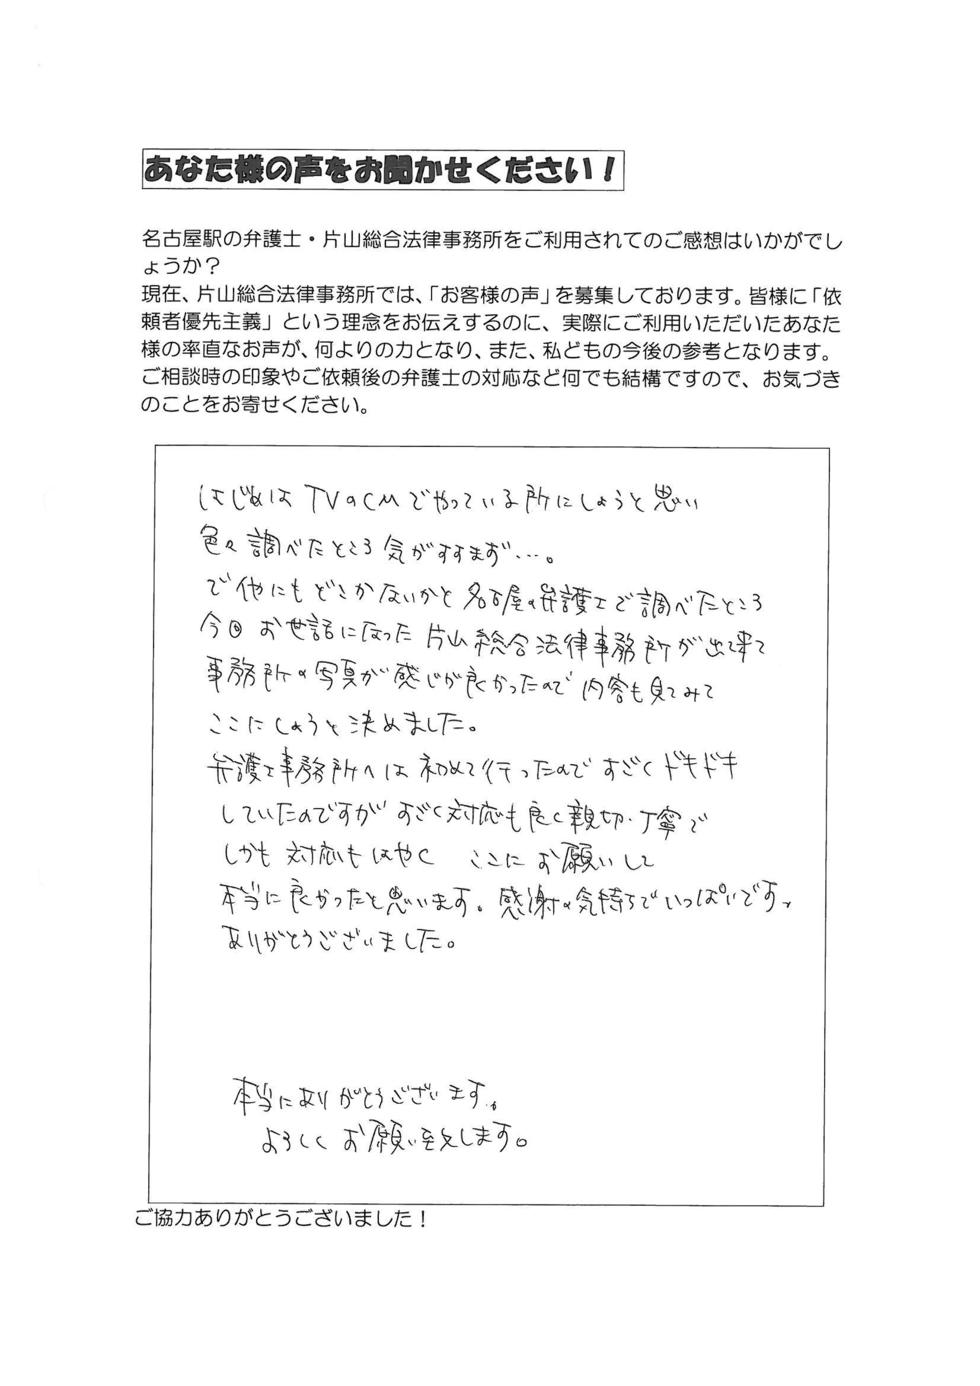 あなた様の声をお聞かせください！
名古屋駅の弁護士・片山総合法律事務所をご利用されてのご感想はいかがでし
ょうか？
現在、片山総合法律事務所では、「お客様の声」を募集しております。皆様に「依
頼者優先主義」という理念をお伝えするのに、実際にご利用いただいたあなた
様の率直なお声が、何よりの力となり、また、私どもの今後の参考となります。
ご相談時の印象やご依頼後の弁護士の対応など何でも結構ですので、お気づき
のことをお寄せください。
はじめはTVのCMでやっている所にしようと思い
色々調べたところ気がすすまず…。
で他にもどこかないかと名古屋の弁護士で調べたところ
今回お世話になった片山総合法律事務所が出て来て
事務所の写真が感じが良かったので内容も見てみて
ここにしようと決めました。
弁護士事務所へは初めて行ったのですごくドキドキ
していたのですがすごく対応も良く親切・丁寧で
しかも対応もはやく ここにお願いして
本当に良かったと思います。感謝の気持ちでいっぱいです。
ありがとうございました。
本当にありがとうございます。
よろしくお願い致します。
ご協力ありがとうございました！